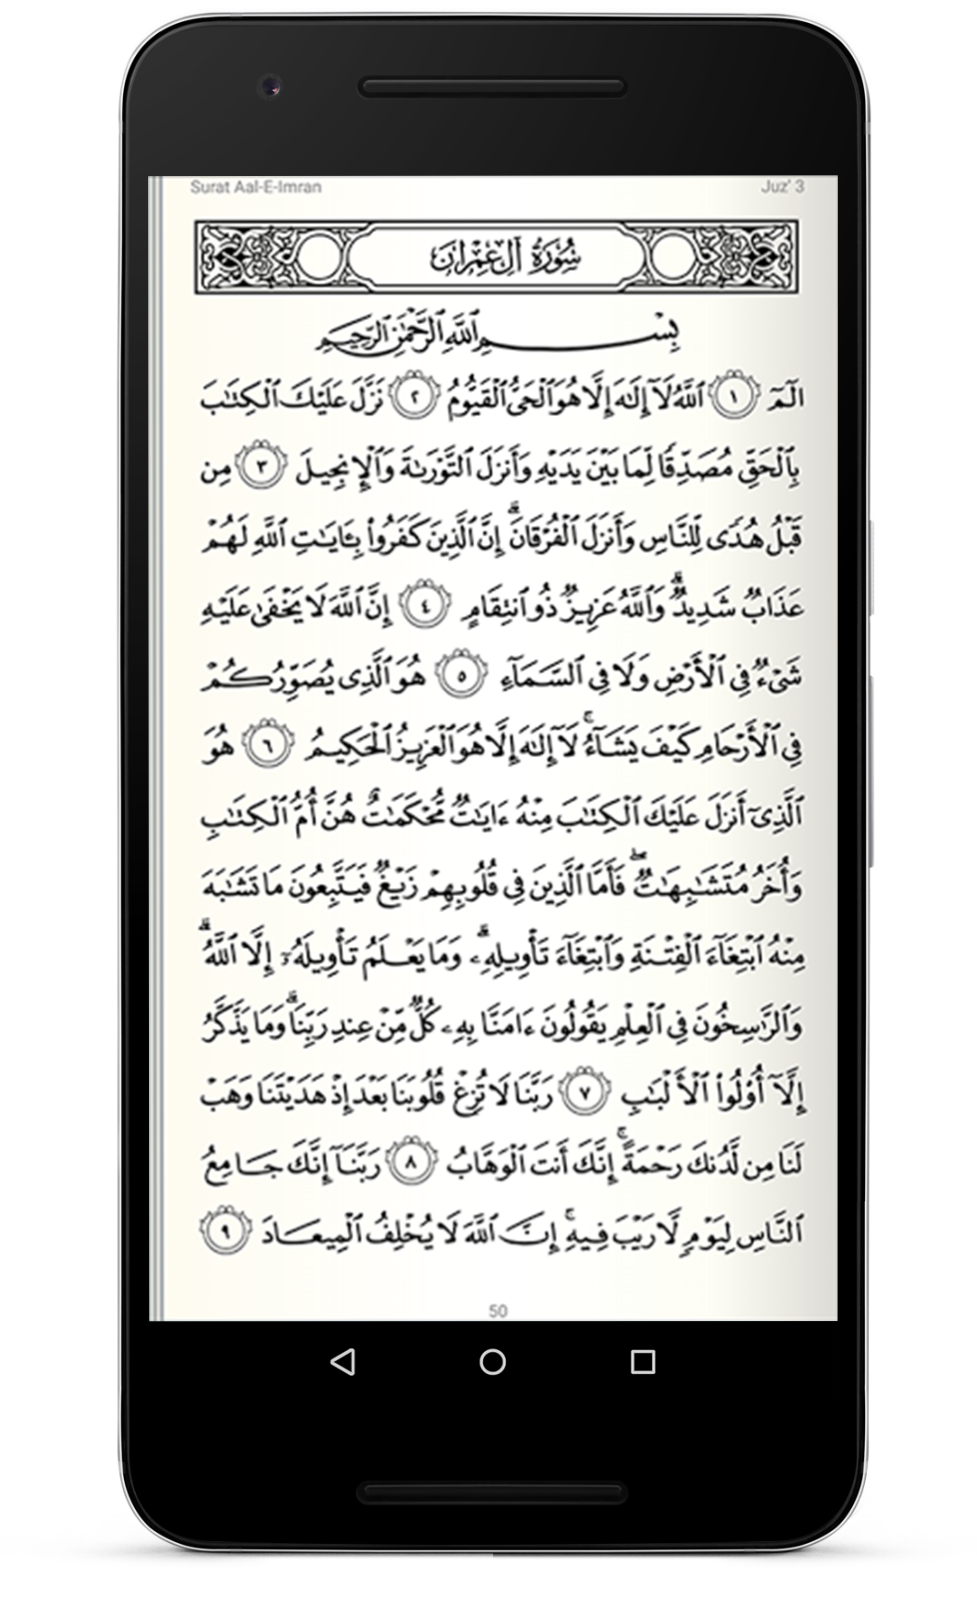 Surat Aal-E-Imran
Juz' 3
سُورَةُ آلِ عِمْرَانَ
بِسْمِ ٱللَّهِ ٱلرَّحْمَٰنِ ٱلرَّحِيمِ
الٓمٓ ١ ٱللَّهُ لَآ إِلَٰهَ إِلَّا هُوَ ٱلْحَىُّ ٱلْقَيُّومُ ٢ نَزَّلَ عَلَيْكَ ٱلْكِتَٰبَ
بِٱلْحَقِّ مُصَدِّقًا لِّمَا بَيْنَ يَدَيْهِ وَأَنزَلَ ٱلتَّوْرَىٰةَ وَٱلْإِنجِيلَ ٣ مِن
قَبْلُ هُدًى لِّلنَّاسِ وَأَنزَلَ ٱلْفُرْقَانَ ۗ إِنَّ ٱلَّذِينَ كَفَرُوا۟ بِـَٔايَٰتِ ٱللَّهِ لَهُمْ
عَذَابٌ شَدِيدٌ ۗ وَٱللَّهُ عَزِيزٌ ذُو ٱنتِقَامٍ ٤ إِنَّ ٱللَّهَ لَا يَخْفَىٰ عَلَيْهِ
شَىْءٌ فِى ٱلْأَرْضِ وَلَا فِى ٱلسَّمَآءِ ٥ هُوَ ٱلَّذِى يُصَوِّرُكُمْ
فِى ٱلْأَرْحَامِ كَيْفَ يَشَآءُ ۚ لَآ إِلَٰهَ إِلَّا هُوَ ٱلْعَزِيزُ ٱلْحَكِيمُ ٦ هُوَ
ٱلَّذِىٓ أَنزَلَ عَلَيْكَ ٱلْكِتَٰبَ مِنْهُ ءَايَٰتٌ مُّحْكَمَٰتٌ هُنَّ أُمُّ ٱلْكِتَٰبِ
وَأُخَرُ مُتَشَٰبِهَٰتٌ ۖ فَأَمَّا ٱلَّذِينَ فِى قُلُوبِهِمْ زَيْغٌ فَيَتَّبِعُونَ مَا تَشَٰبَهَ
مِنْهُ ٱبْتِغَآءَ ٱلْفِتْنَةِ وَٱبْتِغَآءَ تَأْوِيلِهِۦ ۗ وَمَا يَعْلَمُ تَأْوِيلَهُۥٓ إِلَّا ٱللَّهُ ۗ
وَٱلرَّٰسِخُونَ فِى ٱلْعِلْمِ يَقُولُونَ ءَامَنَّا بِهِۦ كُلٌّ مِّنْ عِندِ رَبِّنَا ۗ وَمَا يَذَّكَّرُ
إِلَّآ أُو۟لُوا۟ ٱلْأَلْبَٰبِ ٧ رَبَّنَا لَا تُزِغْ قُلُوبَنَا بَعْدَ إِذْ هَدَيْتَنَا وَهَبْ
لَنَا مِن لَّدُنكَ رَحْمَةً ۚ إِنَّكَ أَنتَ ٱلْوَهَّابُ ٨ رَبَّنَآ إِنَّكَ جَامِعُ
ٱلنَّاسِ لِيَوْمٍ لَّا رَيْبَ فِيهِ ۚ إِنَّ ٱللَّهَ لَا يُخْلِفُ ٱلْمِيعَادَ ٩
50